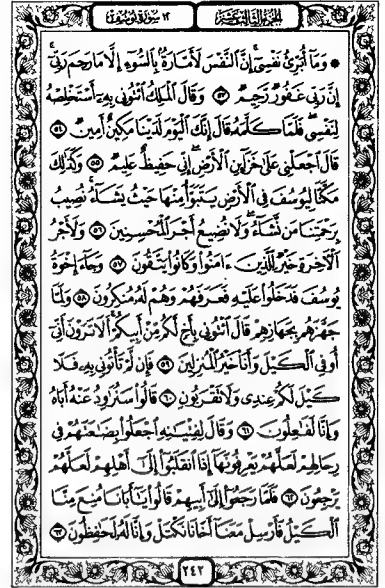 الجزء الثالث عشر
١٢ سورة يوسف
۞ وَمَآ أُبَرِّئُ نَفْسِىٓ إِنَّ ٱلنَّفْسَ لَأَمَّارَةٌۢ بِٱلسُّوٓءِ إِلَّا مَا رَحِمَ رَبِّىٓ
إِنَّ رَبِّى غَفُورٌ رَّحِيمٌ ٥٣ وَقَالَ ٱلْمَلِكُ ٱئْتُونِى بِهِۦٓ أَسْتَخْلِصْهُ
لِنَفْسِى فَلَمَّا كَلَّمَهُۥ قَالَ إِنَّكَ ٱلْيَوْمَ لَدَيْنَا مَكِينٌ أَمِينٌ ٥٤
قَالَ ٱجْعَلْنِى عَلَىٰ خَزَآئِنِ ٱلْأَرْضِ إِنِّى حَفِيظٌ عَلِيمٌ ٥٥ وَكَذَٰلِكَ
مَكَّنَّا لِيُوسُفَ فِى ٱلْأَرْضِ يَتَبَوَّأُ مِنْهَا حَيْثُ يَشَآءُ نُصِيبُ
بِرَحْمَتِنَا مَن نَّشَآءُ وَلَا نُضِيعُ أَجْرَ ٱلْمُحْسِنِينَ ٥٦ وَلَأَجْرُ
ٱلْءَاخِرَةِ خَيْرٌ لِّلَّذِينَ ءَامَنُوا۟ وَكَانُوا۟ يَتَّقُونَ ٥٧ وَجَآءَ إِخْوَةُ
يُوسُفَ فَدَخَلُوا۟ عَلَيْهِ فَعَرَفَهُمْ وَهُمْ لَهُۥ مُنكِرُونَ ٥٨ وَلَمَّا
جَهَّزَهُم بِجَهَازِهِمْ قَالَ ٱئْتُونِى بِأَخٍ لَّكُم مِّنْ أَبِيكُمْ أَلَا تَرَوْنَ أَنِّىٓ
أُوفِى ٱلْكَيْلَ وَأَنَا۠ خَيْرُ ٱلْمُنزِلِينَ ٥٩ فَإِن لَّمْ تَأْتُونِى بِهِۦ فَلَا
كَيْلَ لَكُمْ عِندِى وَلَا تَقْرَبُونِ ٦٠ قَالُوا۟ سَنُرَٰوِدُ عَنْهُ أَبَاهُ
وَإِنَّا لَفَٰعِلُونَ ٦١ وَقَالَ لِفِتْيَٰنِهِ ٱجْعَلُوا۟ بِضَٰعَتَهُمْ فِى
رِحَالِهِمْ لَعَلَّهُمْ يَعْرِفُونَهَآ إِذَا ٱنقَلَبُوٓا۟ إِلَىٰٓ أَهْلِهِمْ لَعَلَّهُمْ
يَرْجِعُونَ ٦٢ فَلَمَّا رَجَعُوٓا۟ إِلَىٰٓ أَبِيهِمْ قَالُوا۟ يَٰٓأَبَانَا مُنِعَ مِنَّا
ٱلْكَيْلُ فَأَرْسِلْ مَعَنَآ أَخَانَا نَكْتَلْ وَإِنَّا لَهُۥ لَحَٰفِظُونَ ٦٣
٢٤٢